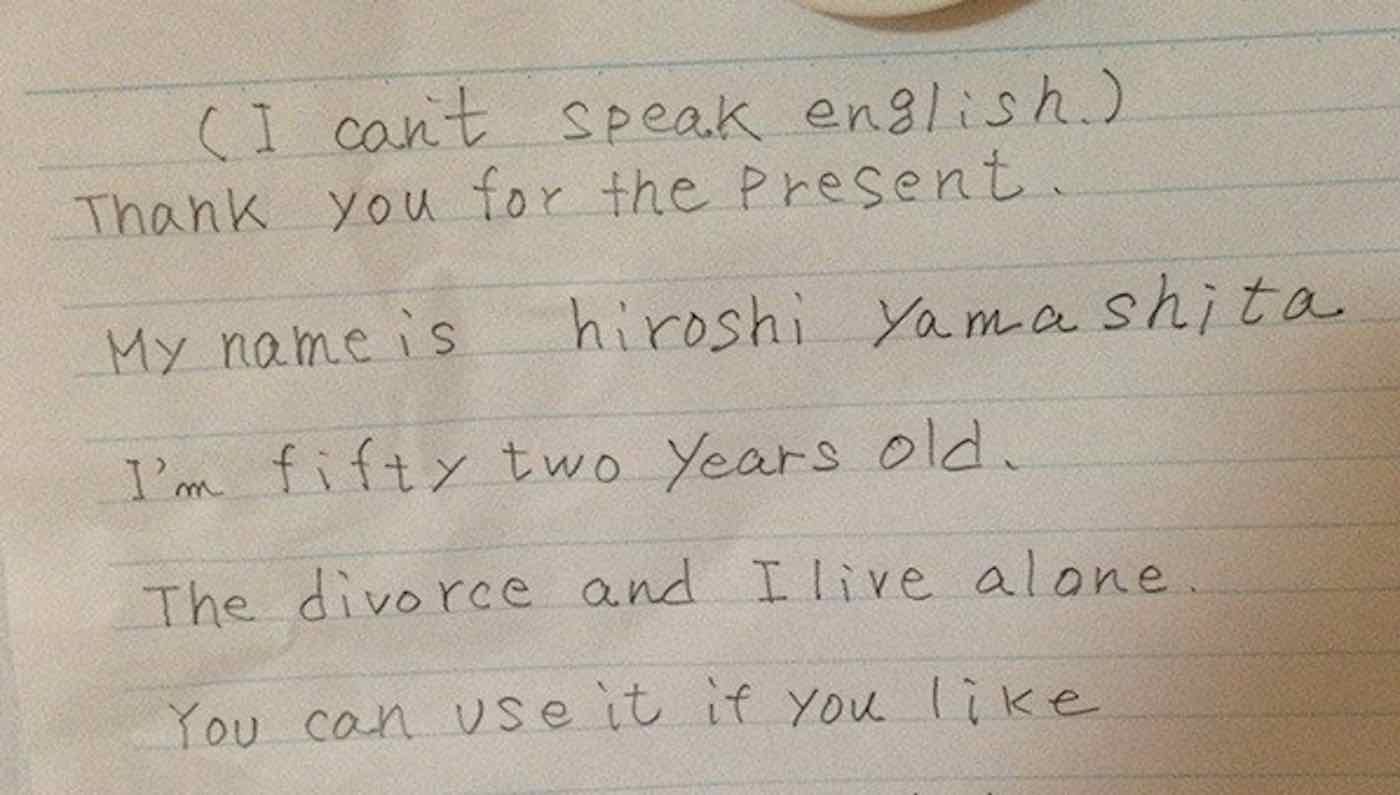 (I can't speak english.)
Thank you for the Present.
My name is hiroshi Yamashita
I'm fifty two Years old.
The divorce and I live alone.
You can use it if you like